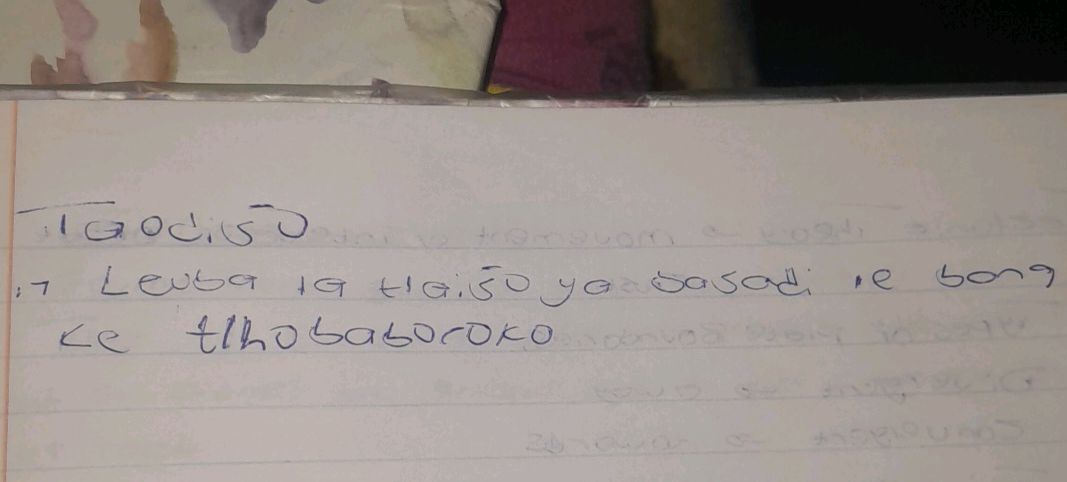 Taodišo
:7 Leuba la tlaišo ya basadi le bong
ke tlhobaboroko